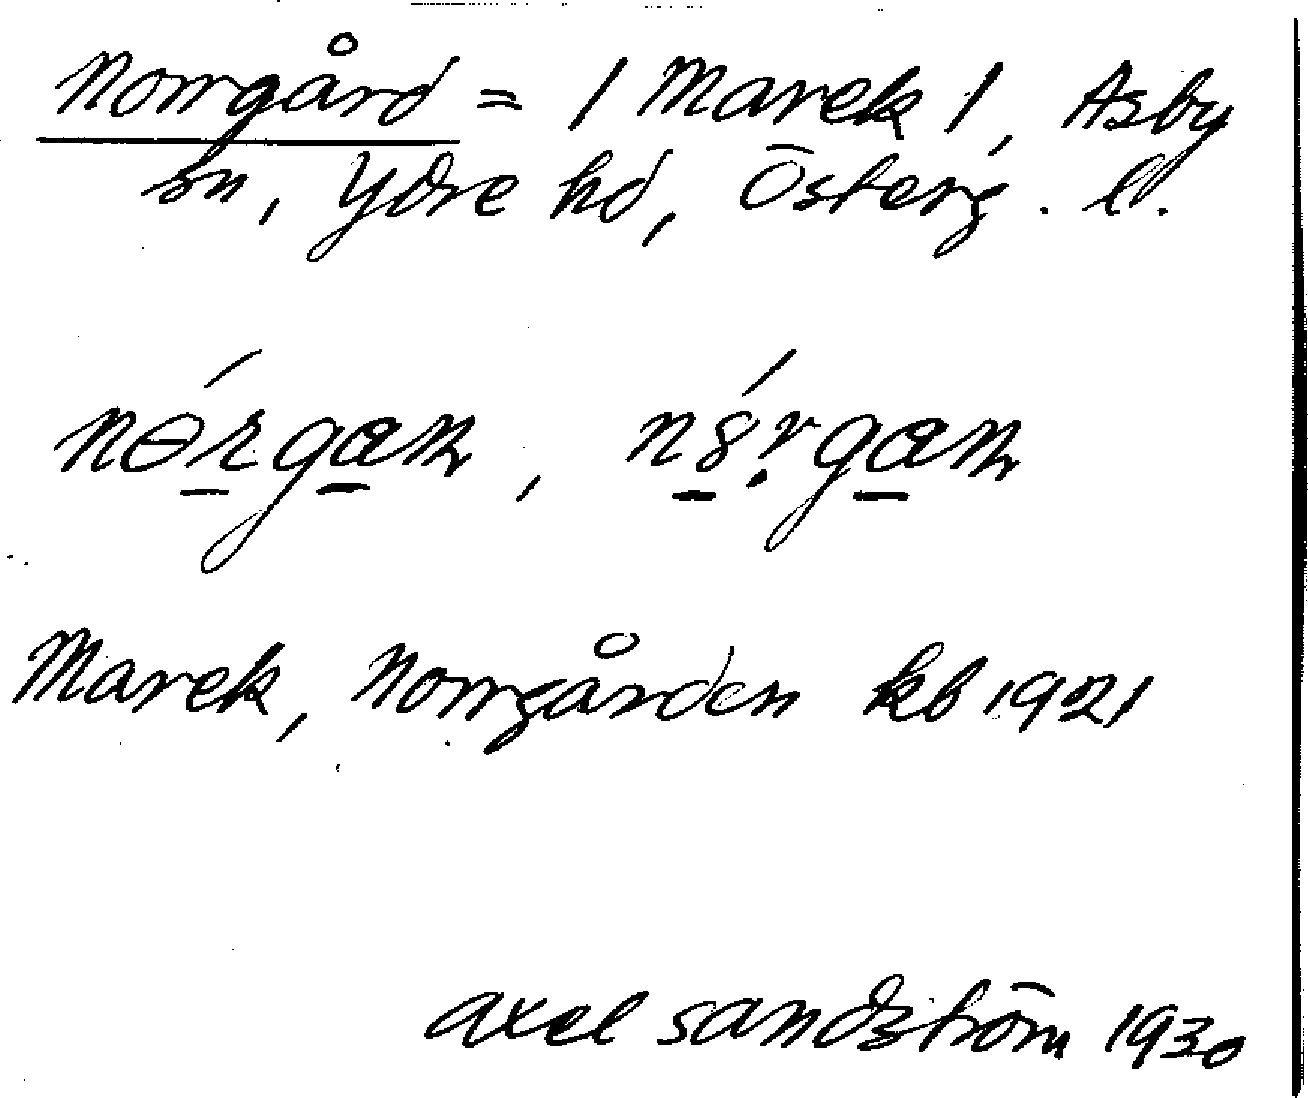 Norrgård = / Marek /, Asby
sn, Ydre hd, Österg. l.
Marek, Norrgården kb 1921
Axel Sandström 1930